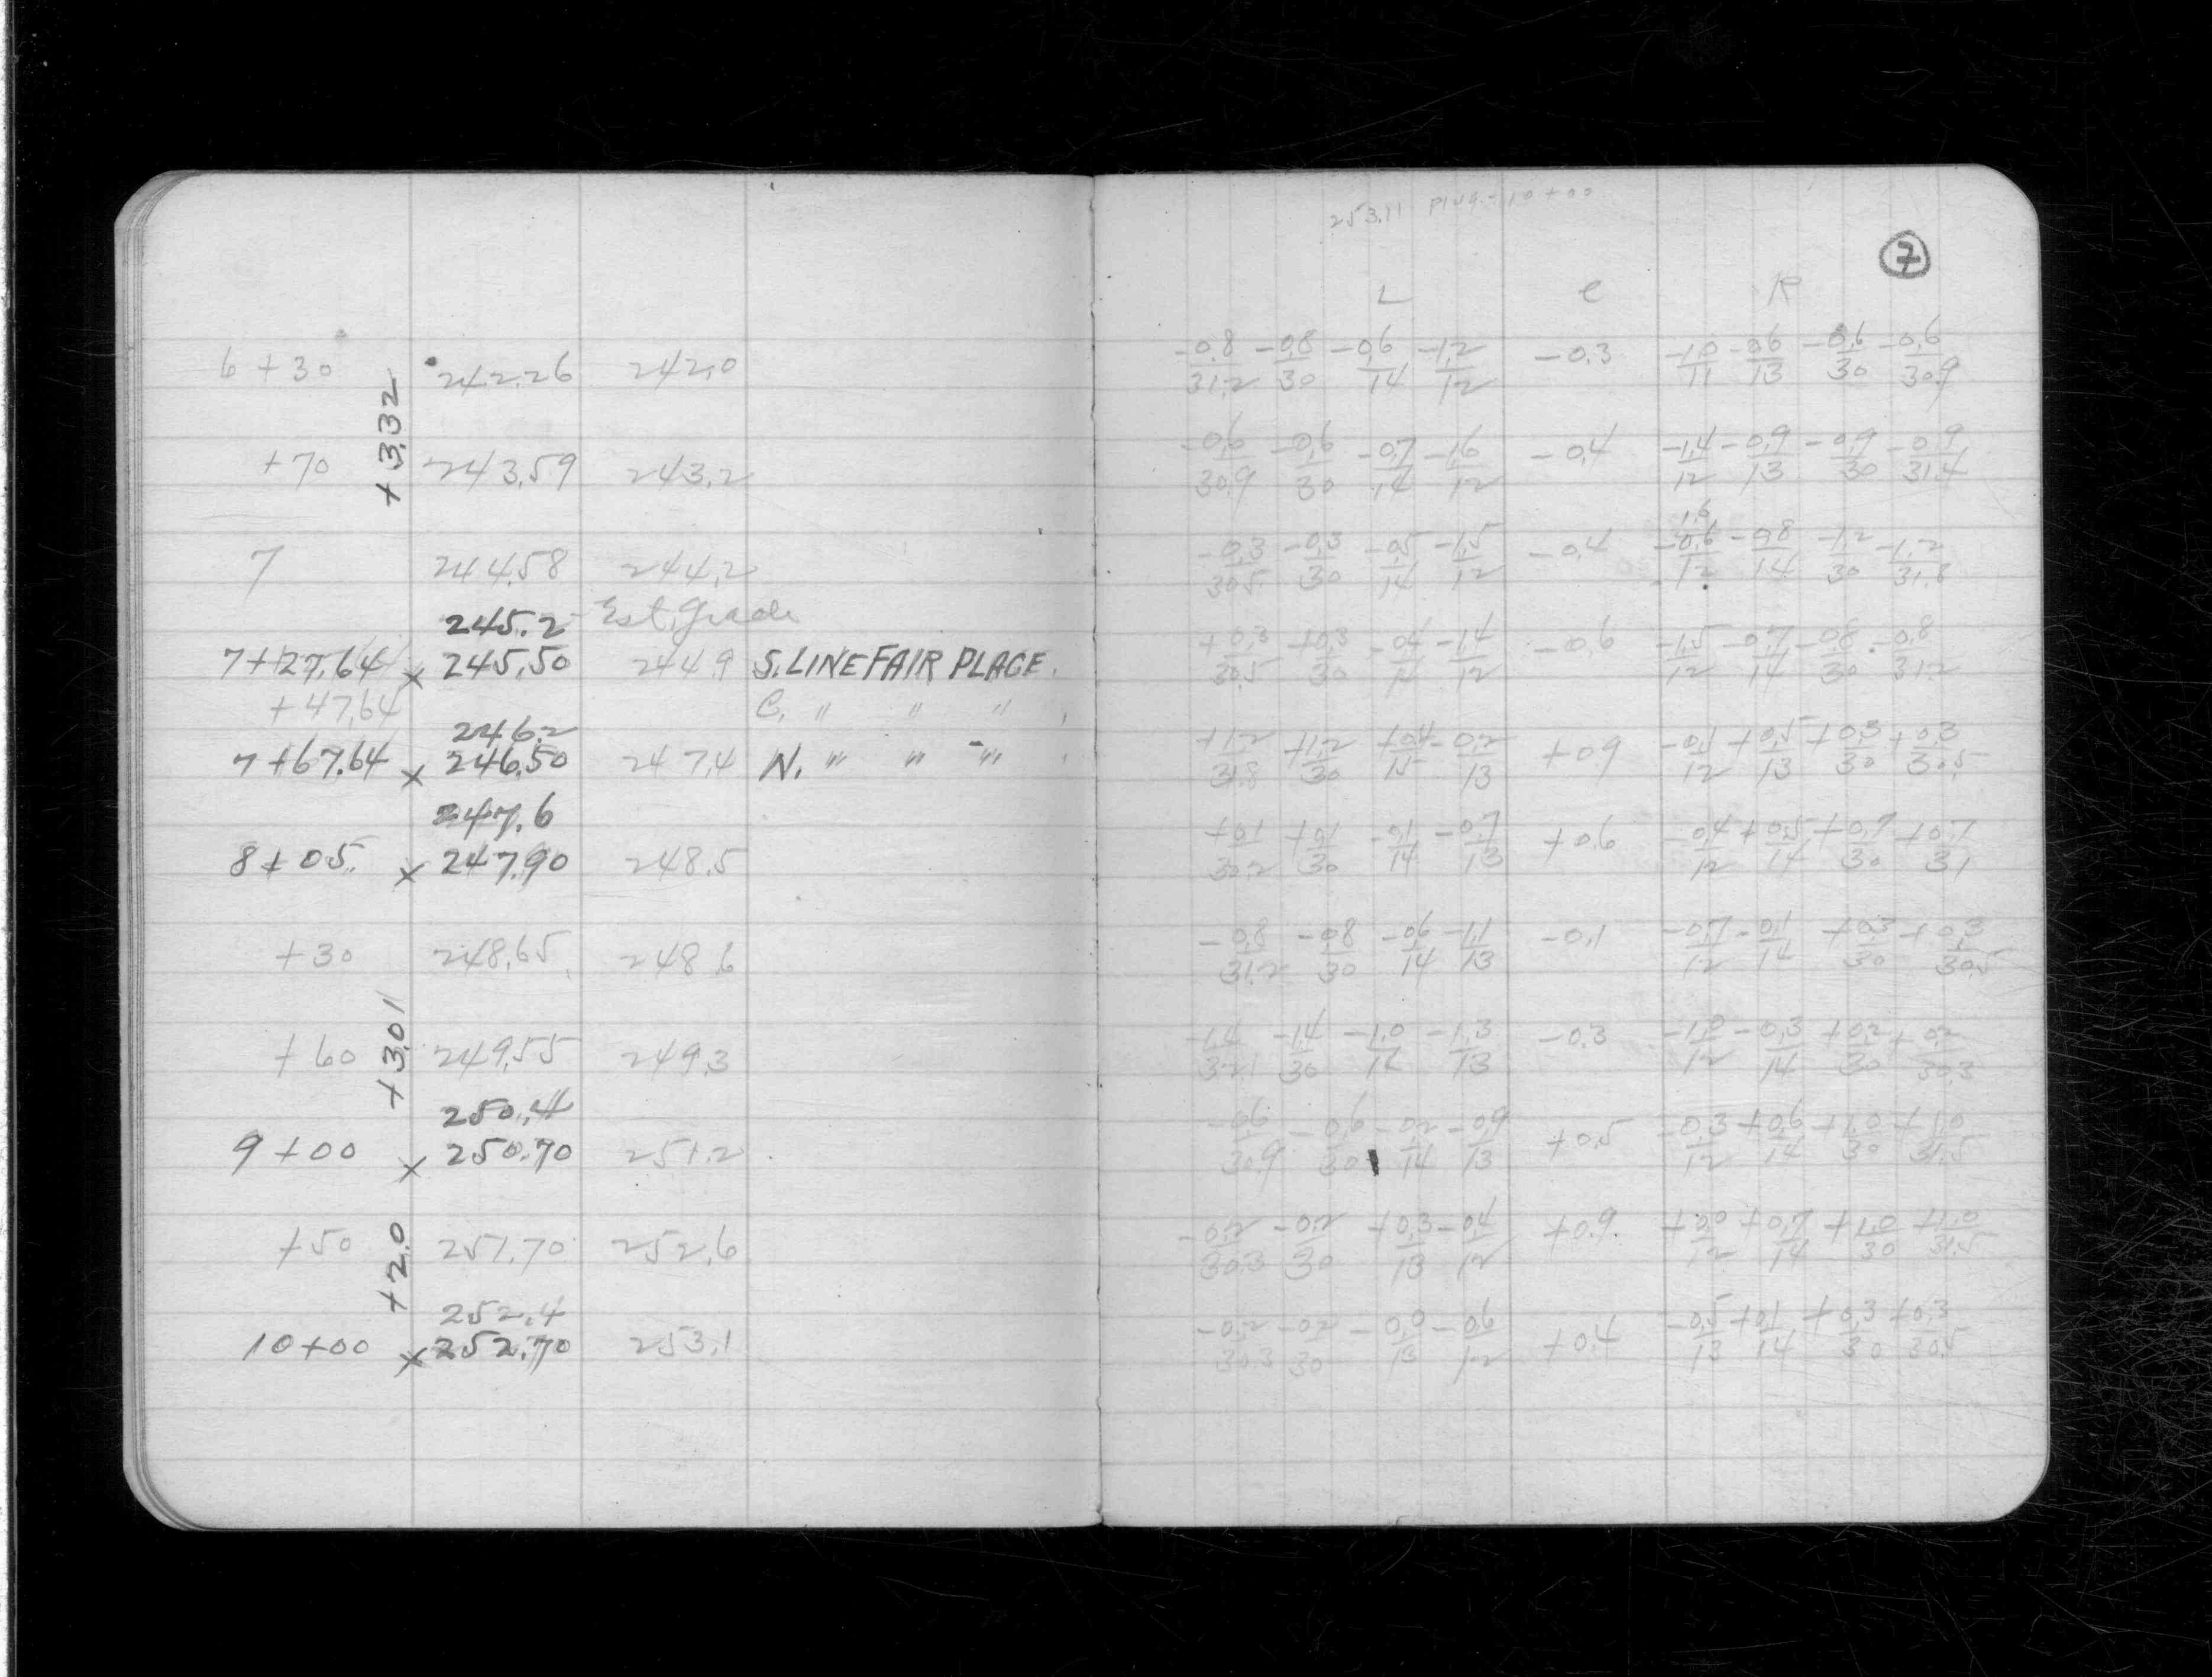 253.11 Plug - 10+00
7
L C R
6+30 242.26 242.0 -0.8/31.2 -0.8/30 -0.6/14 -1.2/12 -0.3 -1.0/11 -0.6/13 -0.6/30 -0.6/30.9
+3.32
+70 243.59 243.2 -0.6/30.9 -0.6/30 -0.7/14 -1.6/12 -0.4 -1.4/12 -0.9/13 -0.9/30 -0.9/31.4
1.6
7 244.58 244.2 -0.3/30.5 -0.3/30 -0.5/14 -1.5/12 -0.4 -0.6/12 -0.8/14 -1.2/30 -1.2/31.8
245.2 - Est. Grade
7+27.64 x 245.50 244.9 S. LINE FAIR PLACE. +0.3/30.5 +0.3/30 -0.4/14 -1.4/12 -0.6 -1.5/12 -0.7/14 -0.8/30 -0.8/31.2
+47.64 C. " " "
246.2
7+67.64 x 246.50 247.4 N. " " " +1.2/31.8 +1.2/30 +0.4/15 -0.2/13 +0.9 -0.1/12 +0.5/13 +0.3/30 +0.3/30.5
247.6
8+05. x 247.90 248.5 +0.1/30.2 +0.1/30 -0.1/14 -0.7/13 +0.6 -0.4/12 +0.5/14 +0.7/30 +0.7/31
+30 248.65 248.6 -0.8/31.2 -0.8/30 -0.6/14 -1.1/13 -0.1 -0.7/12 -0.1/14 +0.3/30 +0.3/30.5
+3.01
+60 249.55 249.3 -1.4/32.1 -1.4/30 -1.0/14 -1.3/13 -0.3 -1.0/12 -0.3/14 +0.2/30 +0.2/30.3
250.4
9+00 x 250.70 251.2 -0.6/30.9 -0.6/30 -0.2/14 -0.9/13 +0.5 -0.3/12 +0.6/14 +1.0/30 +1.0/31.5
+2.0
+50 251.70 252.6 -0.2/30.3 -0.2/30 +0.3/13 -0.4/12 +0.9 +0.0/12 +0.7/14 +1.0/30 +1.0/31.5
252.4
10+00 x 252.70 253.1 -0.2/30.3 -0.2/30 -0.0/13 -0.6/12 +0.4 -0.5/13 +0.1/14 +0.3/30 +0.3/30.5